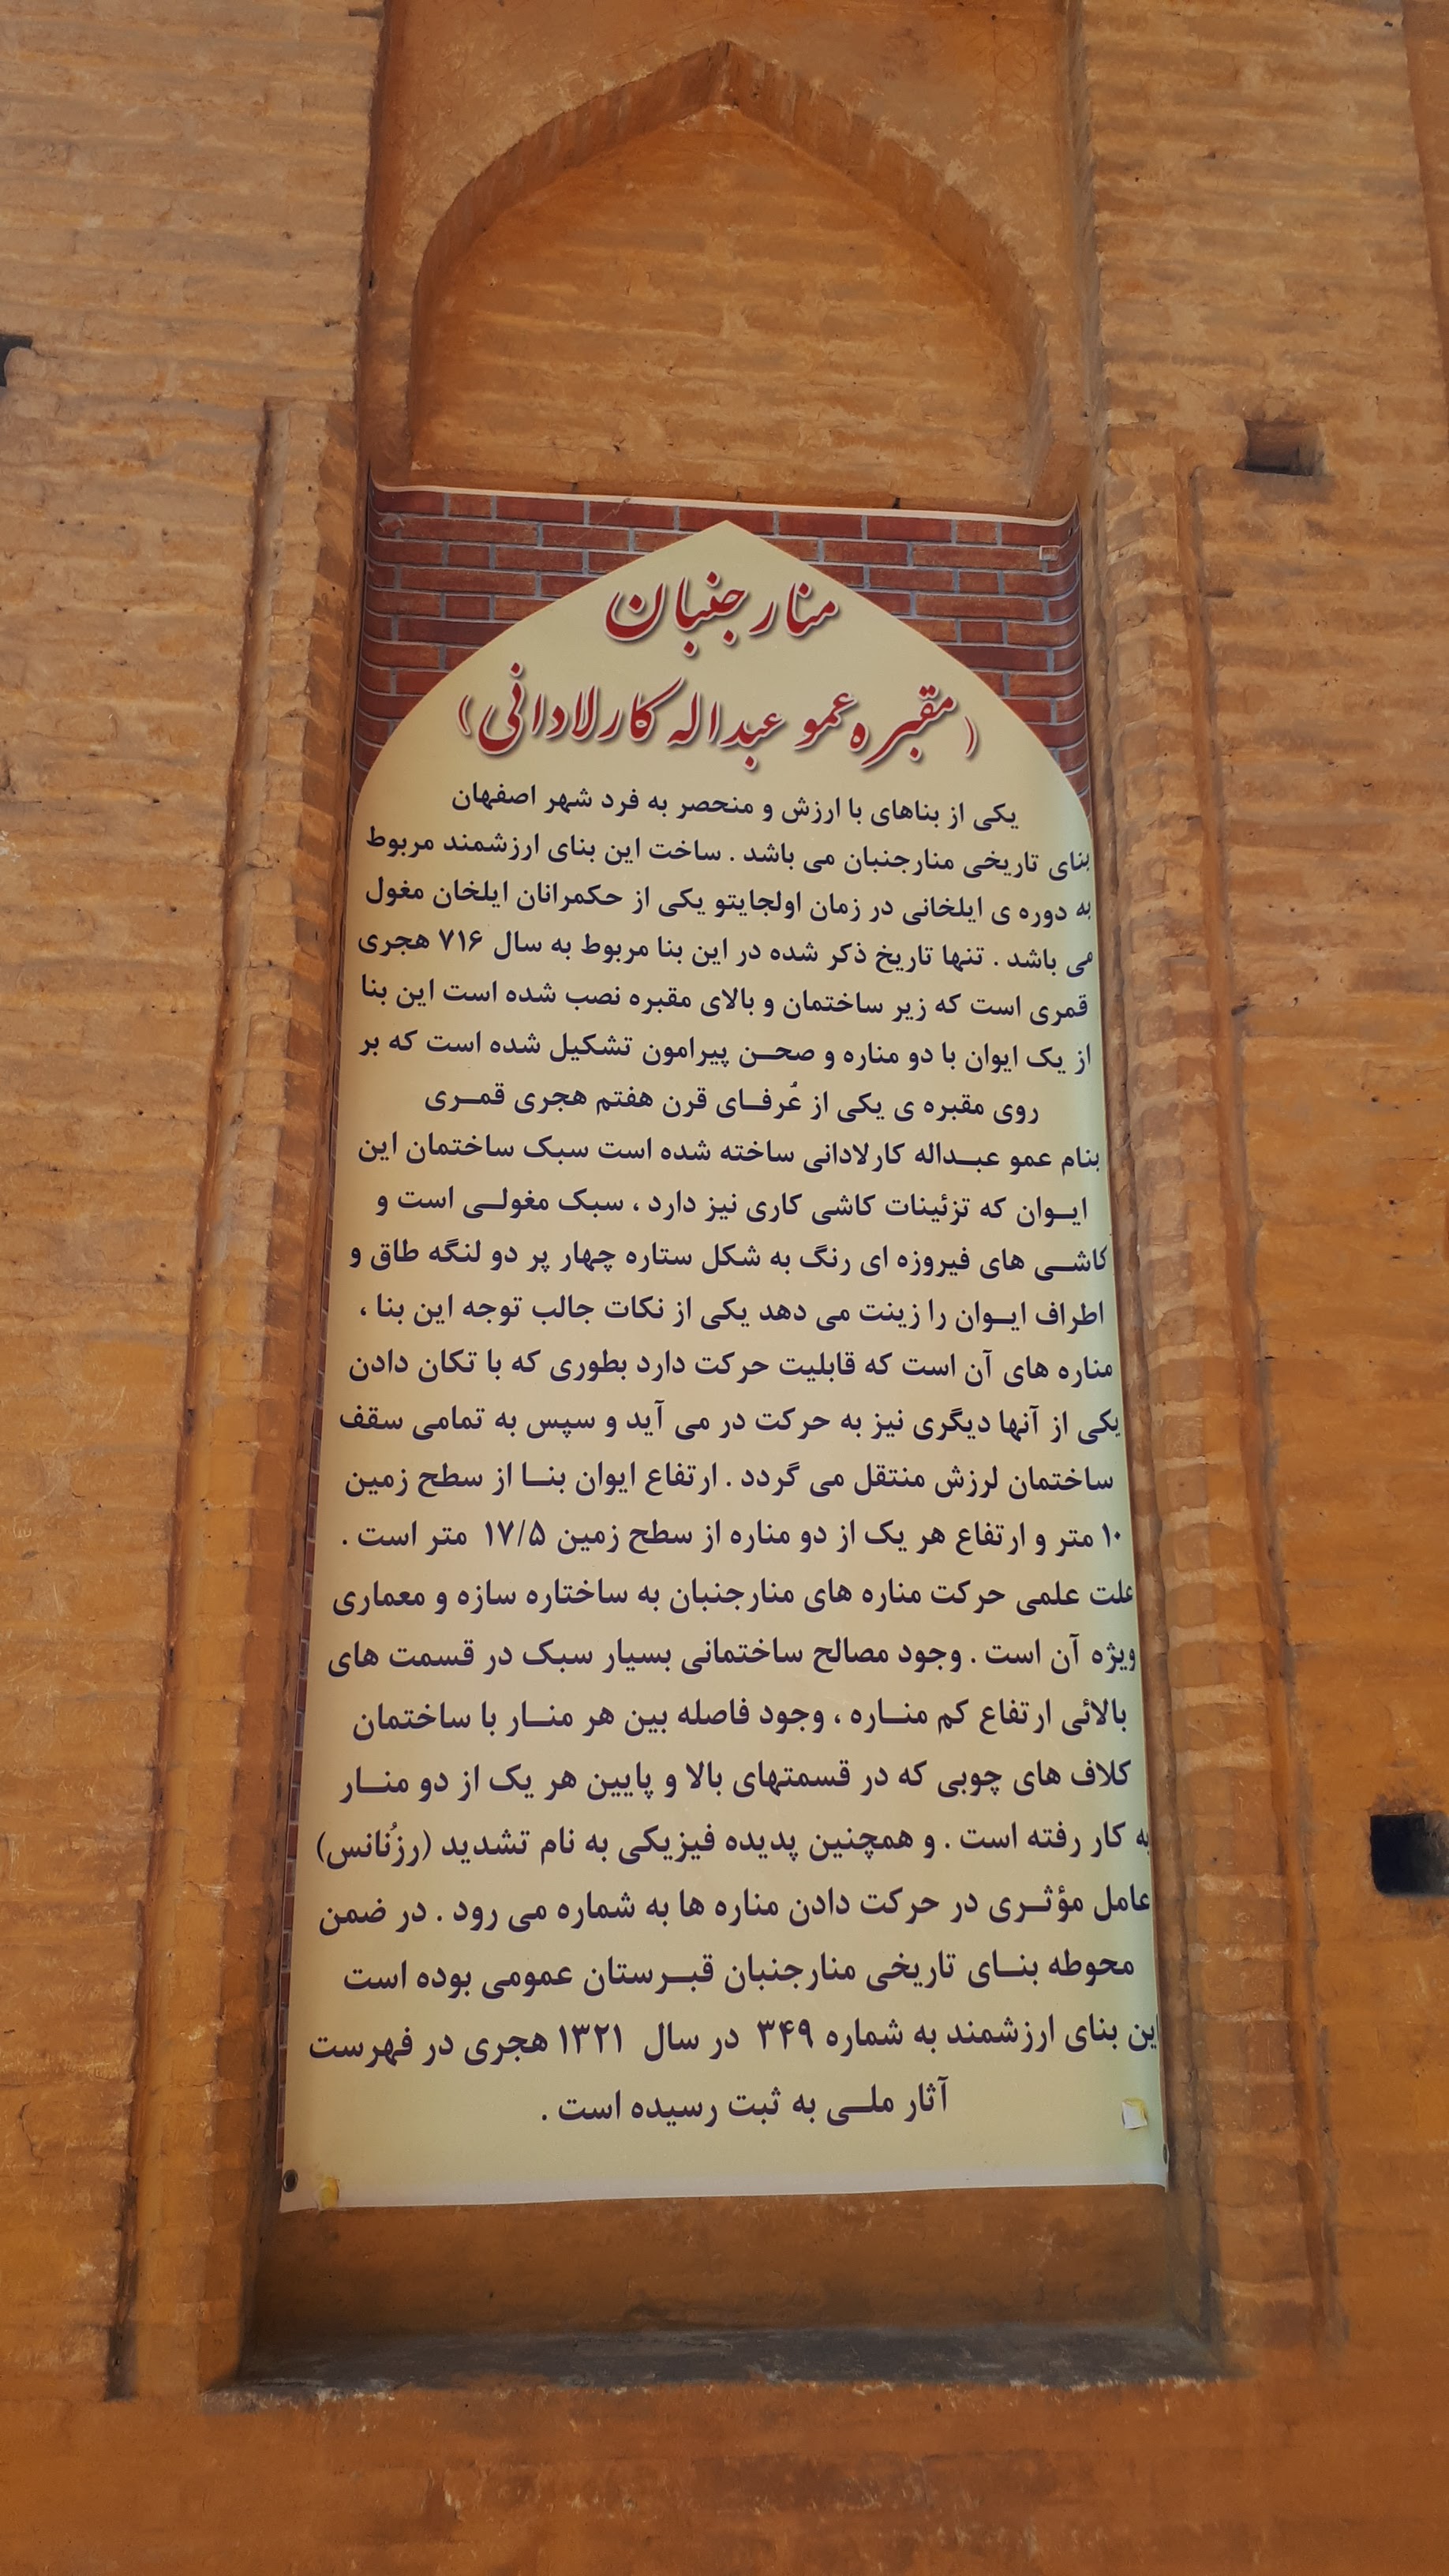 منارجنبان
(مقبره عمو عبداله کارلادانی)
یکی از بناهای با ارزش و منحصر به فرد شهر اصفهان
بنای تاریخی منارجنبان می باشد . ساخت این بنای ارزشمند مربوط
به دوره ی ایلخانی در زمان اولجایتو یکی از حکمرانان ایلخان مغول
می باشد . تنها تاریخ ذکر شده در این بنا مربوط به سال ۷۱۶ هجری
قمری است که زیر ساختمان و بالای مقبره نصب شده است این بنا
از یک ایوان با دو مناره و صحـن پیرامون تشکیل شده است که بر
روی مقبره ی یکی از عُرفـای قرن هفتم هجری قمـری
بنام عمو عبـداله کارلادانی ساخته شده است سبک ساختمان این
ایـوان که تزئینات کاشی کاری نیز دارد ، سبک مغولـی است و
کاشـی های فیروزه ای رنگ به شکل ستاره چهار پر دو لنگه طاق و
اطراف ایـوان را زینت می دهد یکی از نکات جالب توجه این بنا ،
مناره های آن است که قابلیت حرکت دارد بطوری که با تکان دادن
یکی از آنها دیگری نیز به حرکت در می آید و سپس به تمامی سقف
ساختمان لرزش منتقل می گردد . ارتفاع ایوان بنـا از سطح زمین
۱۰ متر و ارتفاع هر یک از دو مناره از سطح زمین ۱۷/۵ متر است .
علت علمی حرکت مناره های منارجنبان به ساختاره سازه و معماری
ویژه آن است . وجود مصالح ساختمانی بسیار سبک در قسمت های
بالائی ارتفاع کم منـاره ، وجود فاصله بین هر منـار با ساختمان
کلاف های چوبی که در قسمتهای بالا و پایین هر یک از دو منـار
به کار رفته است . و همچنین پدیده فیزیکی به نام تشدید (رزُنانس)
عامل مؤثـری در حرکت دادن مناره ها به شماره می رود . در ضمن
محوطه بنـای تاریخی منارجنبان قبـرستان عمومی بوده است
این بنای ارزشمند به شماره ۳۴۹ در سال ۱۳۲۱ هجری در فهرست
آثار ملـی به ثبت رسیده است .